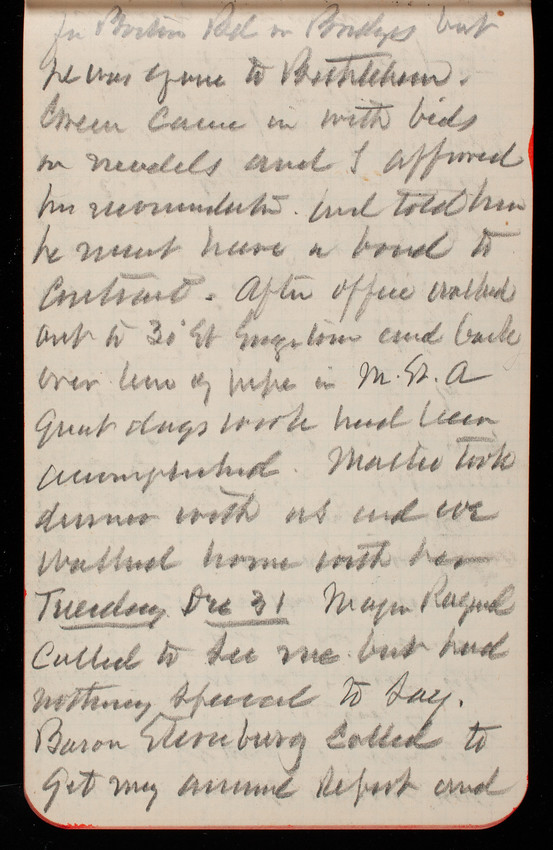 for Boston Rd on Bridges but
he was gone to Bethlehem.
Green came in with bids
on models and I approved
his recommendation. and told him
he must have a bond to
Contract. After office walked
out to 30 St Georgetown and back
over line of pipe in M. St. A
great days work had been
accomplished. Mattie took
dinner with us and we
walked home with her
Tuesday Dec 31 Major
Called to see me but had
nothing special to say.
Baron called to
get my annual report and